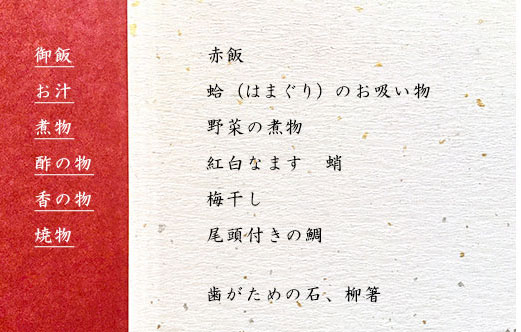 御飯 赤飯
お汁 蛤（はまぐり）のお吸い物
煮物 野菜の煮物
酢の物 紅白なます 蛸
香の物 梅干し
焼物 尾頭付きの鯛
歯がための石、柳箸